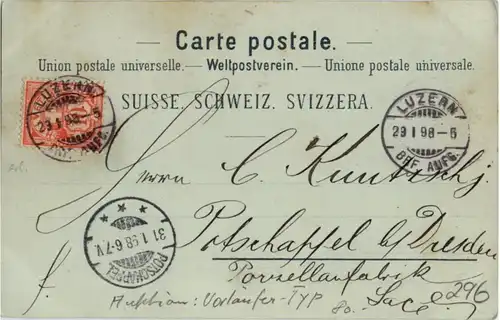 — Carte postale. —
Union postale universelle. — Weltpostverein. — Unione postale universale.
SUISSE. SCHWEIZ. SVIZZERA.
LUZERN
29 I 98 - 5
BRF. AUFG.
LUZERN
29 I 98 - 5
BRF. AUFG.
10
Herrn C.
Potschappel b/Dresden
Porzellanfabrik
31.1.98.6-7.V.
POTSCHAPPEL
Auktion: Vorläufer-TYP
296